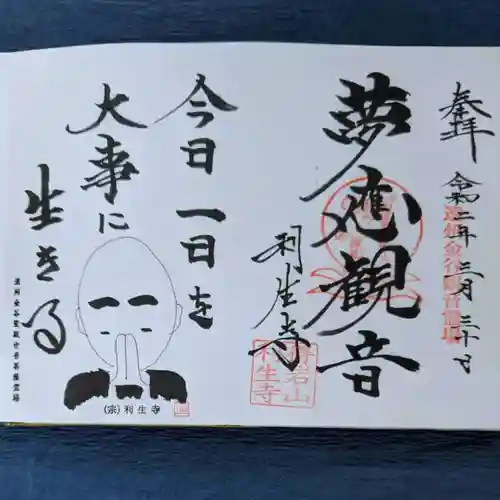 奉拝
令和二年三月三十日
夢應観音
利生寺
岩山
利生寺
今日一日を
大事に
生きる
(宗)利生寺